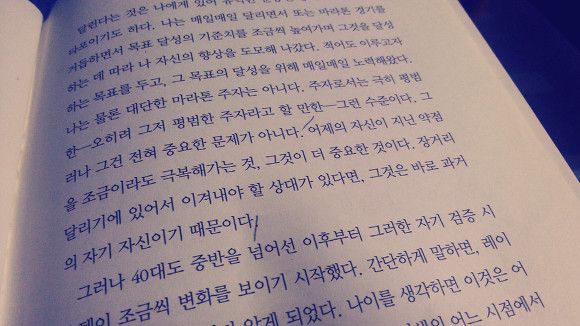 달린다는 것은 나에게 있어 유익한
타로이기도 하다. 나는 매일매일 달리면서 또는 마라톤 경기를
거듭하면서 목표 달성의 기준치를 조금씩 높여가며 그것을 달성
하는 데 따라 나 자신의 향상을 도모해 나갔다. 적어도 이루고자
하는 목표를 두고, 그 목표의 달성을 위해 매일매일 노력해왔다.
나는 물론 대단한 마라톤 주자는 아니다. 주자로서는 극히 평범
한—오히려 그저 평범한 주자라고 할 만한—그런 수준이다. 그
러나 그건 전혀 중요한 문제가 아니다. 어제의 자신이 지닌 약점
을 조금이라도 극복해가는 것, 그것이 더 중요한 것이다. 장거리
달리기에 있어서 이겨내야 할 상대가 있다면, 그것은 바로 과거
의 자기 자신이기 때문이다.
그러나 40대도 중반을 넘어선 이후부터 그러한 자기 검증 시
조금씩 변화를 보이기 시작했다. 간단하게 말하면, 레이
알게 되었다. 나이를 생각하면 이것은 어
어느 시점에서